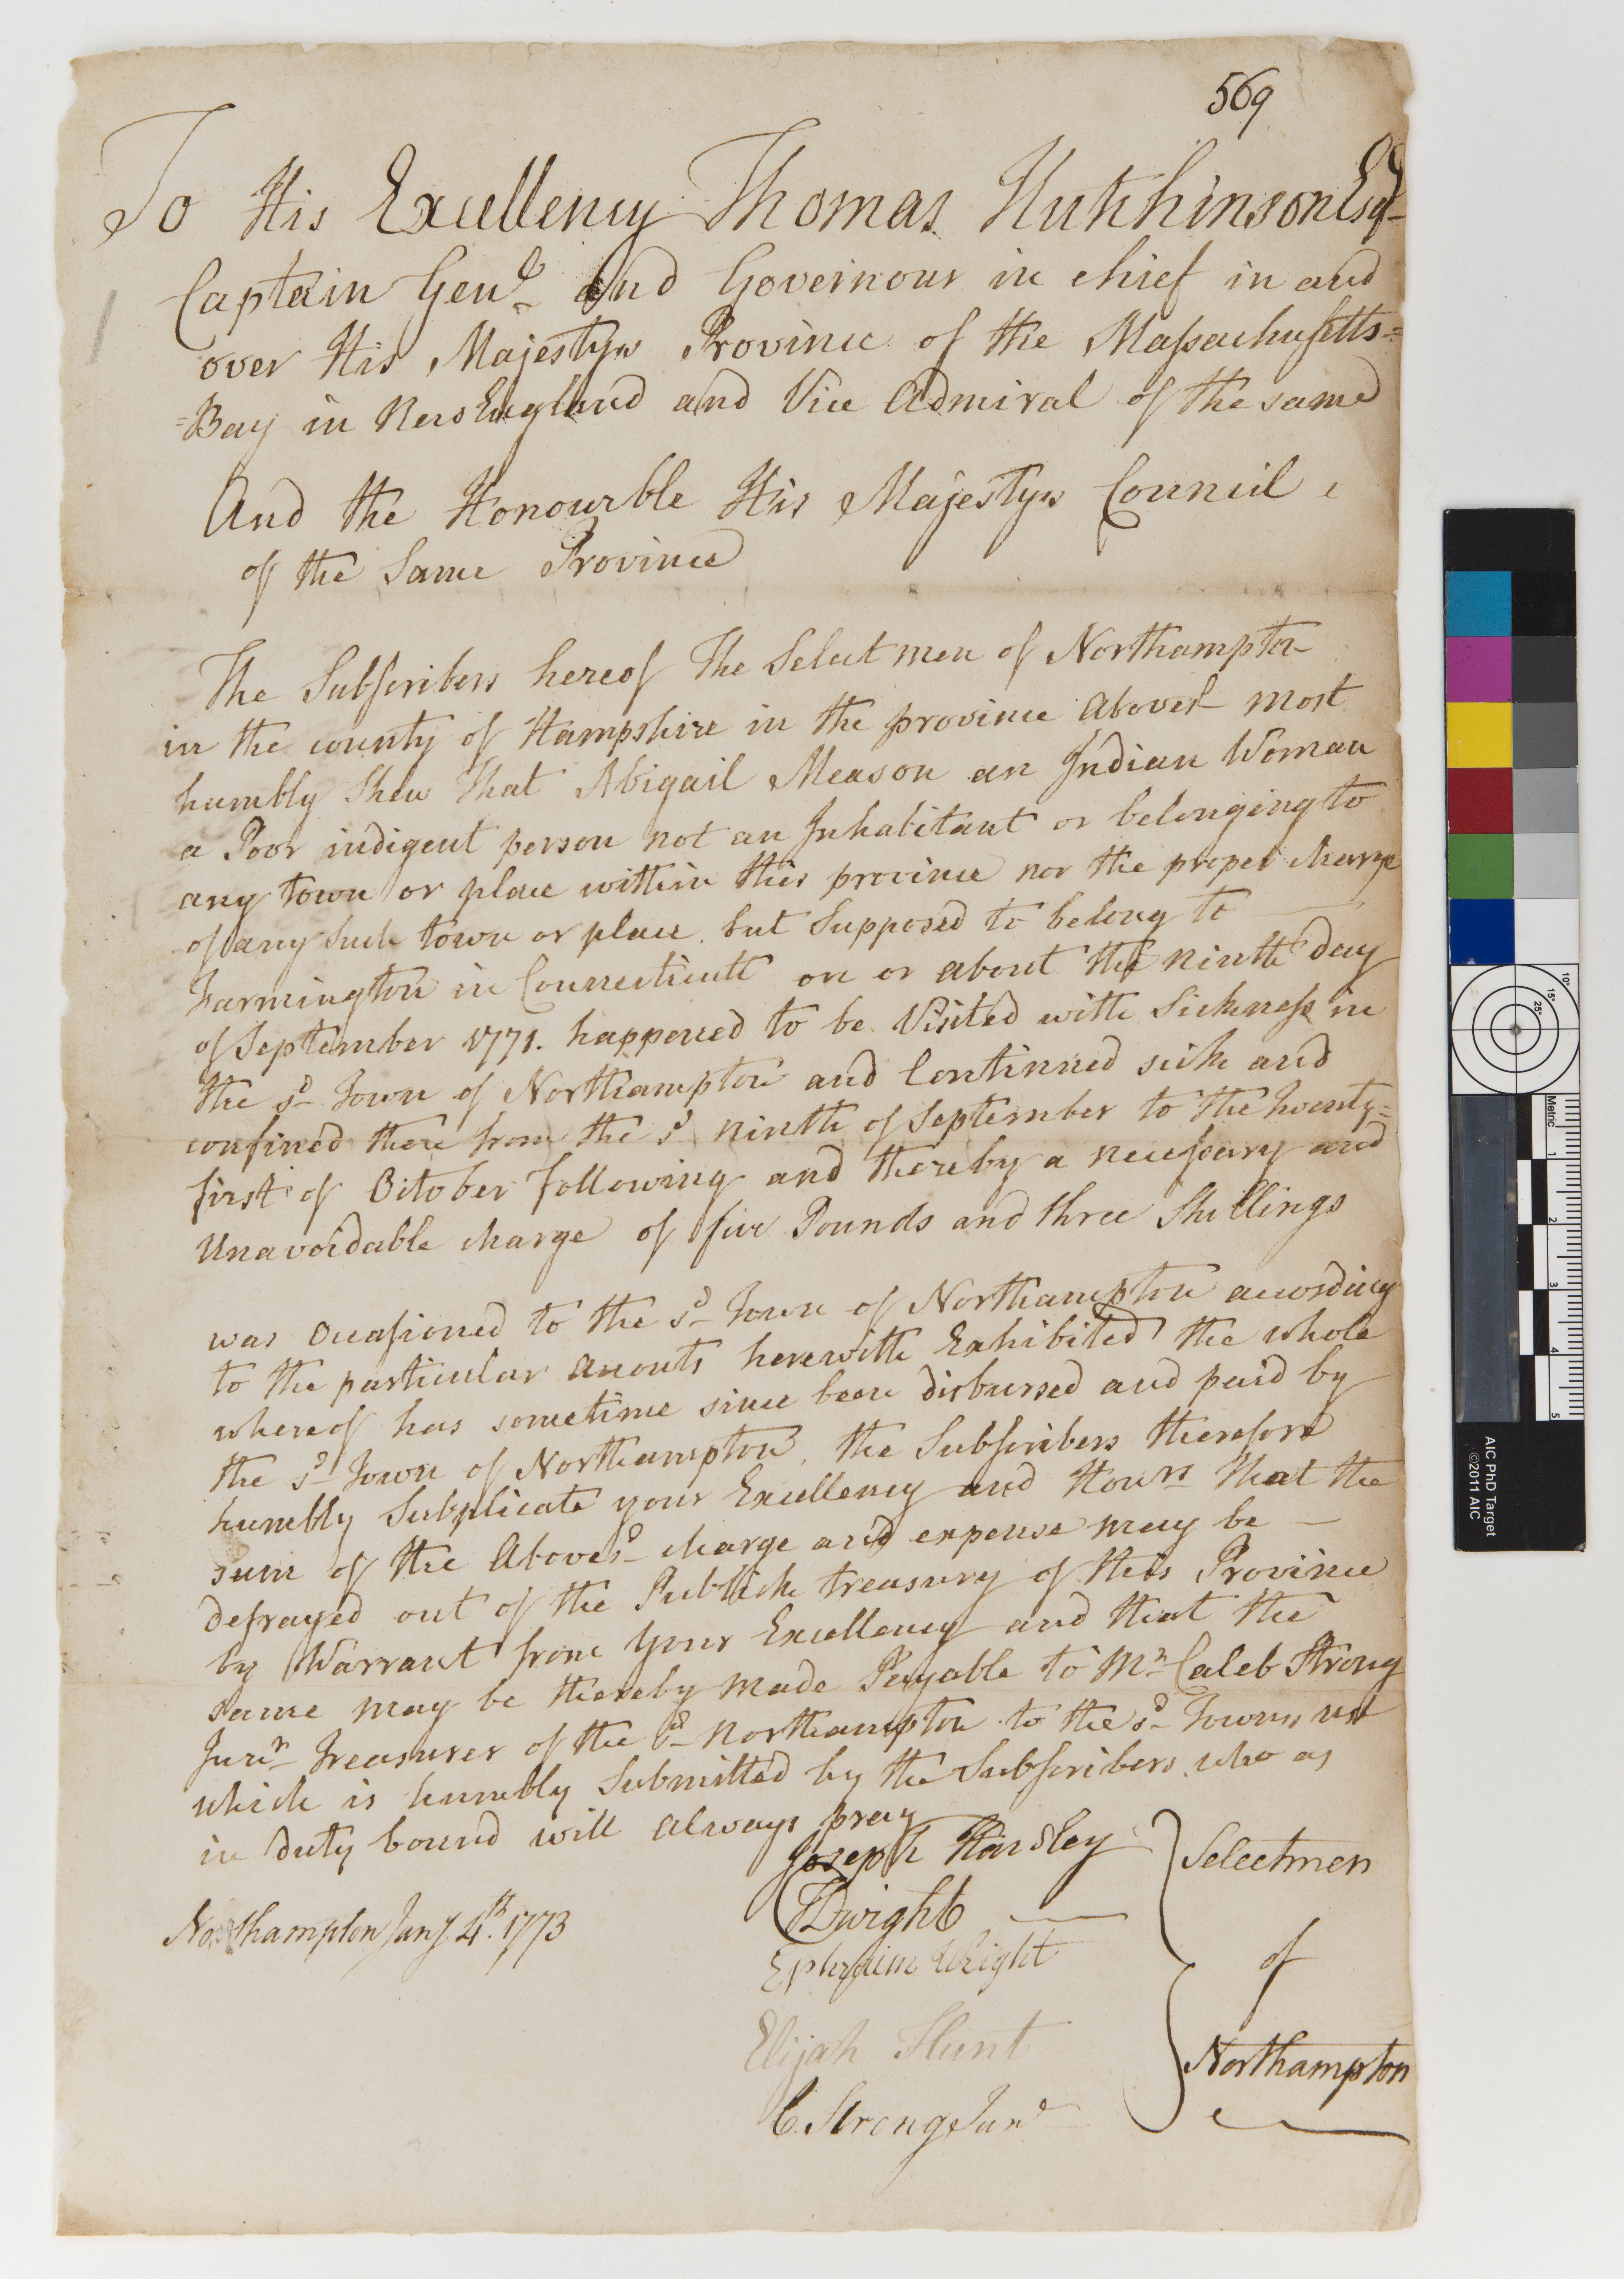 569
To His Excellency Thomas Hutchinson Esqr
Captain Genl and Governour in chief in and
over His Majestys Province of the Massachusetts=
=Bay in New England and Vice Admiral of the same
And the Honourble His Majestys Council
of the Same Province
The Subscribers hereof The Select men of Northampton
in the county of Hampshire in the province abovesd most
humbly Shew That Abigail Meason an Indian Woman
a Poor indigent person not an Inhabitant or belonging to
any town or place within this province nor the proper charge
of any such town or place. but Supposed to belong to
Farmington in Connecticutt on or about the ninth day
of September 1771. happened to be Visited with Sickness in
the sd Town of Northampton and Continued sick and
confined there from the sd ninth of September to the Twenty=
first of October following and thereby a necessary and
Unavoidable charge of five Pounds and three Shillings
was occasioned to the sd Town of Northampton according
to the particular accounts herewith Exhibited the whole
whereof has sometime since been disbursed and paid by
the sd Town of Northampton, the Subscribers therefore
humbly Subplicate your Excellency and Honrs That the
sum of the Abovesd charge and expense may be
defrayed out of the Publick treasury of this Province
by Warrant from your Excellency and that the
same may be thereby made Payable to Mr Caleb Strong
Junr Treasurer of the sd Northampton to the sd Towns use
which is humbly Submitted by the Subscribers who as
in duty bound will always pray
Joseph Hawley
Dwight
Ephraim Wright
Elijah Hunt
C. Strong Junr
Selectmen
of
Northampton
Northampton Jany. 4th. 1773
10°
15°
25°
Metric
1
2
3
4
5
AIC PhD Target
©2011 AIC